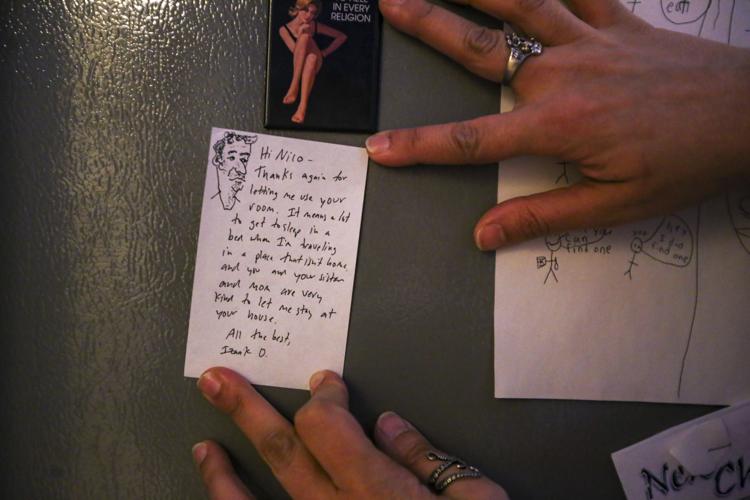 IN EVERY
RELIGION
Hi Nico -
Thanks again for
letting me use your
room. It means a lot
to get to sleep in a
bed when I'm traveling
in a place that isn't home,
and you and your sister
and mom are very
kind to let me stay at
your house.
All the best,
Izaak O.
eat
can
find one
you
hey
I
find one